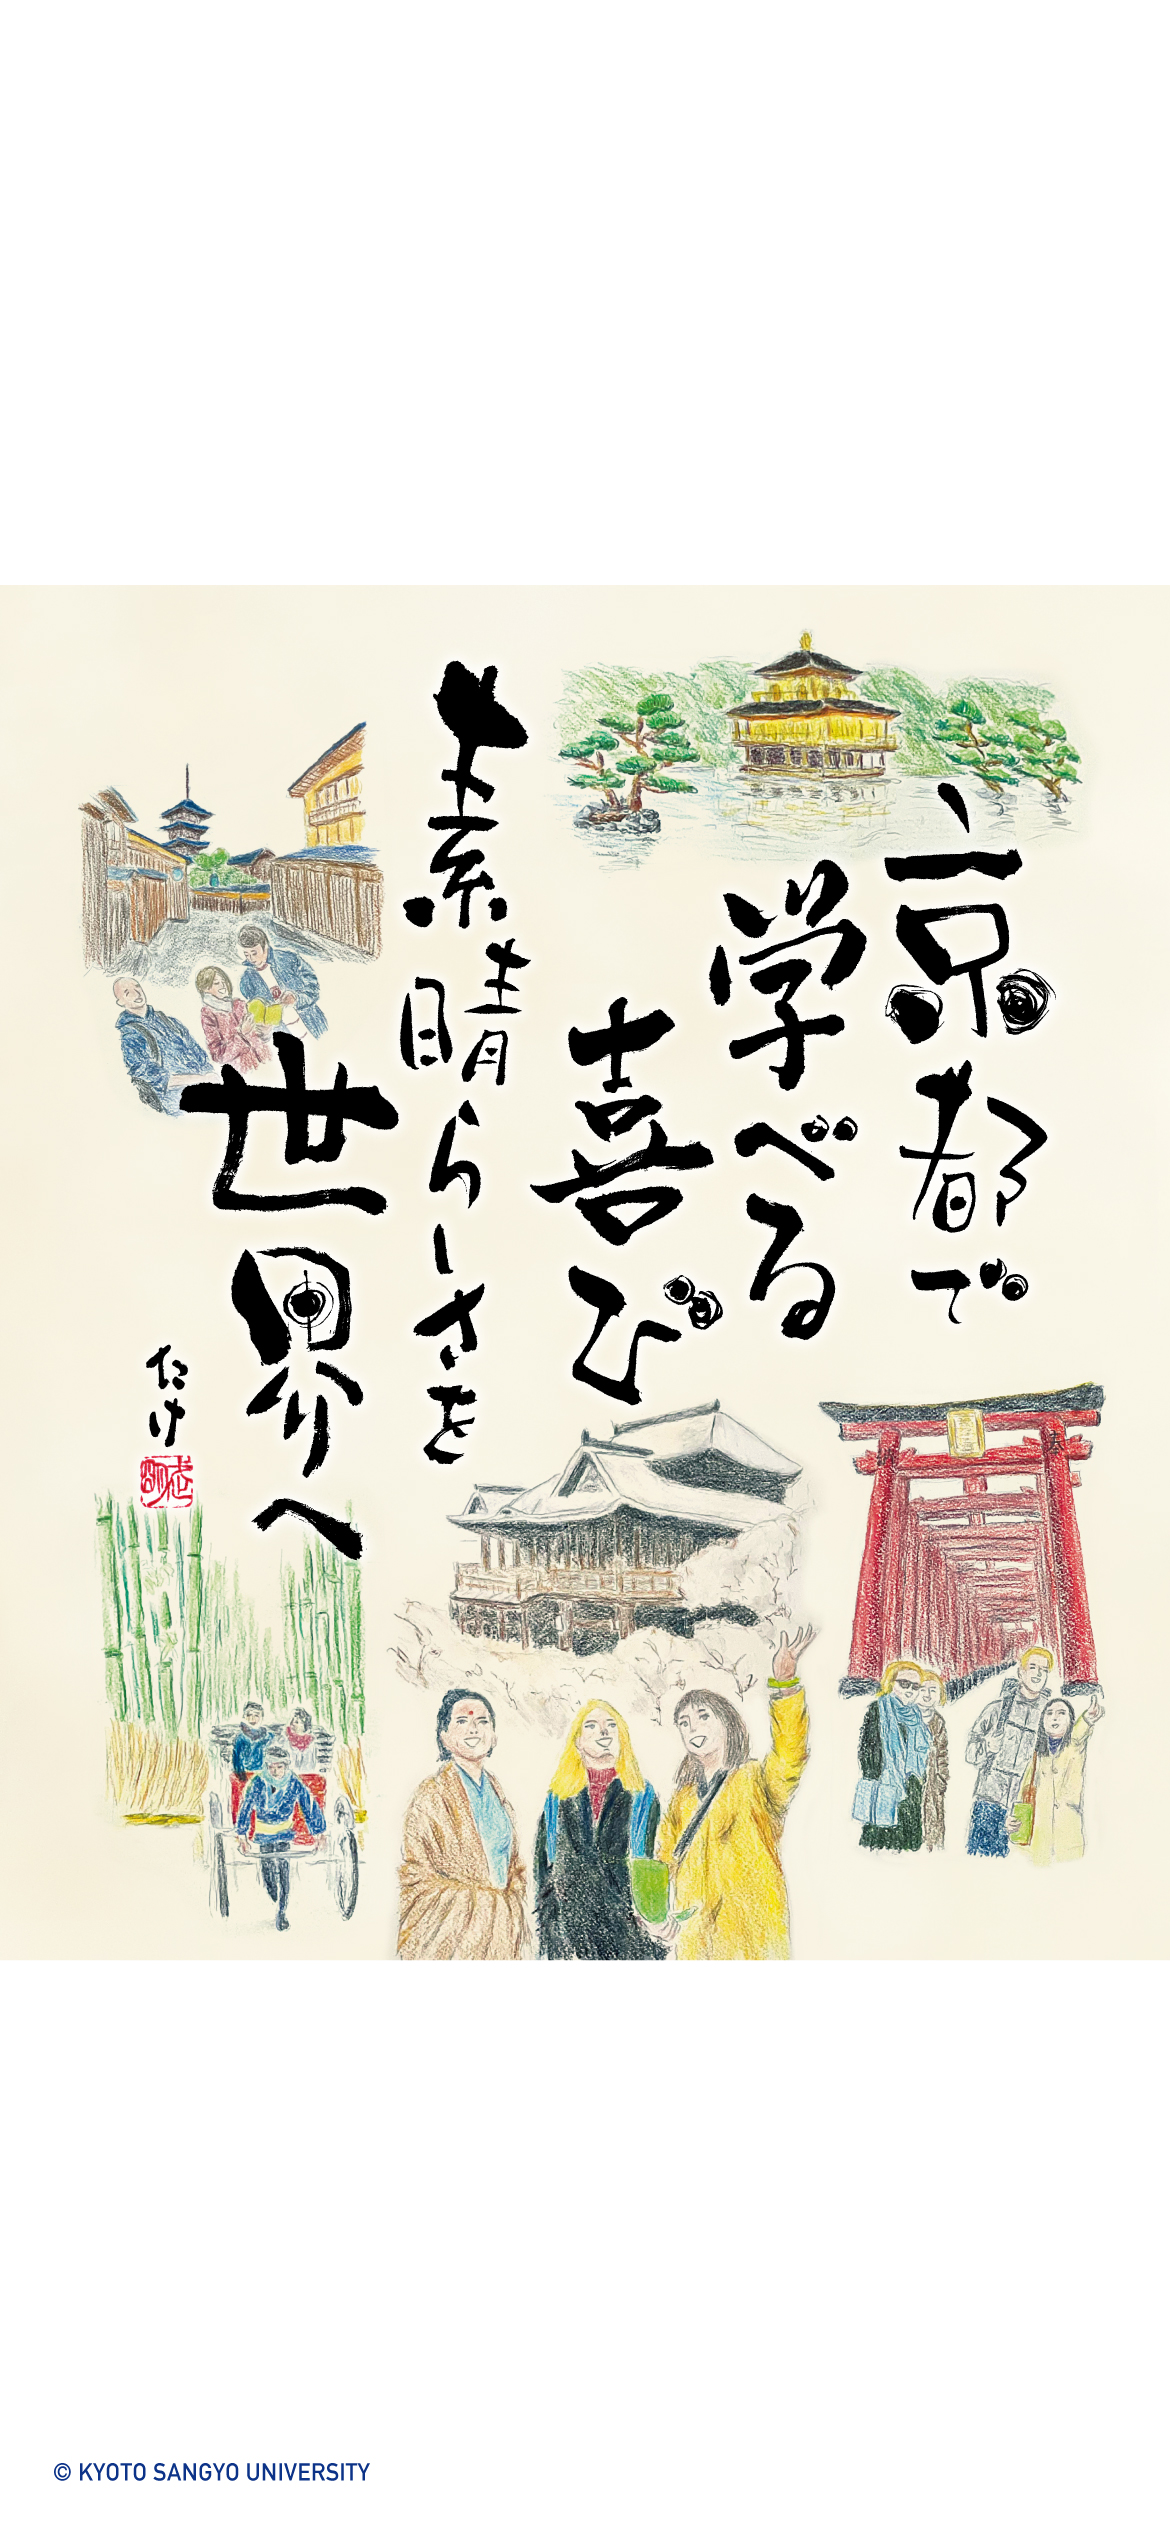 京都で
学べる
喜び
素晴らしさを
世界へ
たけ
© KYOTO SANGYO UNIVERSITY